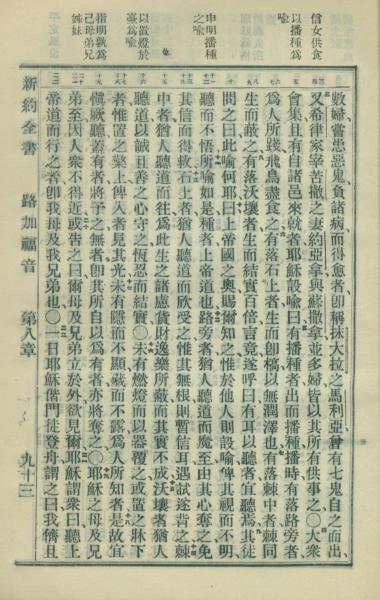 信女供食
以播種爲
喻
申明播種
之喻
以置燈於
臺爲喻
指明孰爲
己母弟兄
姊妹
數婦嘗患惡鬼負諸病而得愈者卽稱抹大拉之馬利亞曾有七鬼自之而出
又希律家宰苦撒之妻約亞拿與蘇撒拿並多婦皆以其所有供事之〇大衆
會集且有自諸邑來就者耶穌設喻曰有播種者出而播種播時有落路旁者
爲人所踐飛鳥盡食之有落石上者生而卽槁以無潤澤也有落棘中者棘同
生而蔽之有落沃壤者生而結實百倍言竟遂呼曰有耳以聽者宜聽焉其徒
問之曰此喻何耶曰上帝國之奧賜爾知之惟於他人則設喻俾其視而不明
聽而不悟所喻如是種者上帝道也路旁者猶人聽道而魔至由其心奪之免
其信而得救石上者猶人聽道而欣受之惟其無根則暫信耳遇試遂背之棘
中者猶人聽道而往爲此生之諸慮貨財逸樂所蔽而其實不成沃壤者猶人
聽道以誠且善之心守之恆忍而結實〇未有燃燈而以器覆之或置之牀下
者惟置之檠上俾入者見其光未有隱而不顯藏而不露爲人所知者是故宜
愼厥聽蓋有者將予之無者卽其所自以爲有者亦將奪之〇耶穌之母及兄
弟至因人衆不得近或告之曰爾母及兄弟立於外欲見爾耶穌謂衆曰聽上
帝道而行之者卽我母及我兄弟也〇一日耶穌偕門徒登舟謂之曰我儕且
新約全書 路加福音 第八章 九十三